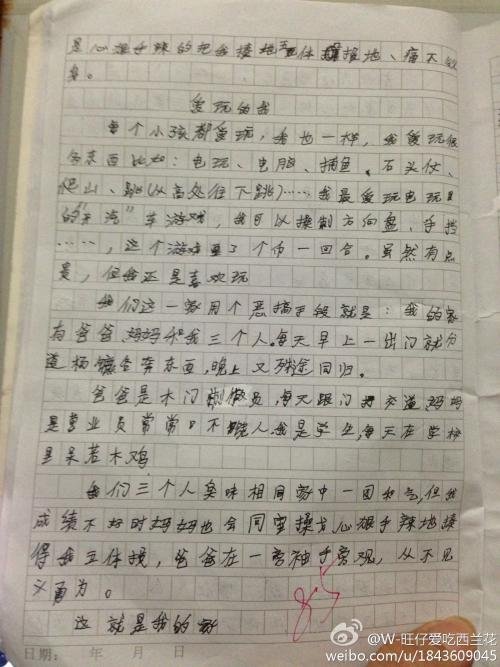 是心狠手辣的把我揍地五体投地、痛不欲
生。
爱玩的我
每个小孩都爱玩,我也一样,我爱玩很
多东西比如:电玩、电脑、捕鱼、石头仗、
爬山、跳(从高处往下跳)……我最爱玩电玩里
的"汽"车游戏,我可以操制方向盘、手挡
……,这个游戏要3个币一回合。虽然有点
贵,但我还是喜欢玩
我们这一家用个恶搞手段就是:我的家
有爸爸妈妈和我三个人。每天早上一出门就分
道杨镳各奔东西,晚上又殊途同归。
爸爸是木门 做员,每天跟门 交道妈妈
是营业员常常口不 人我是学生,每天在学校
里呆若木鸡
我们三个人臭味相同家中一团和气,但我
成绩不好时妈妈也会同室操戈心狠手辣地揍
得我五体投,爸爸在一旁袖手旁观,从不见
义勇为。
这就是我的家
85
日期: 年 月 日
@W-旺仔爱吃西兰花
weibo.com/u/1843609045